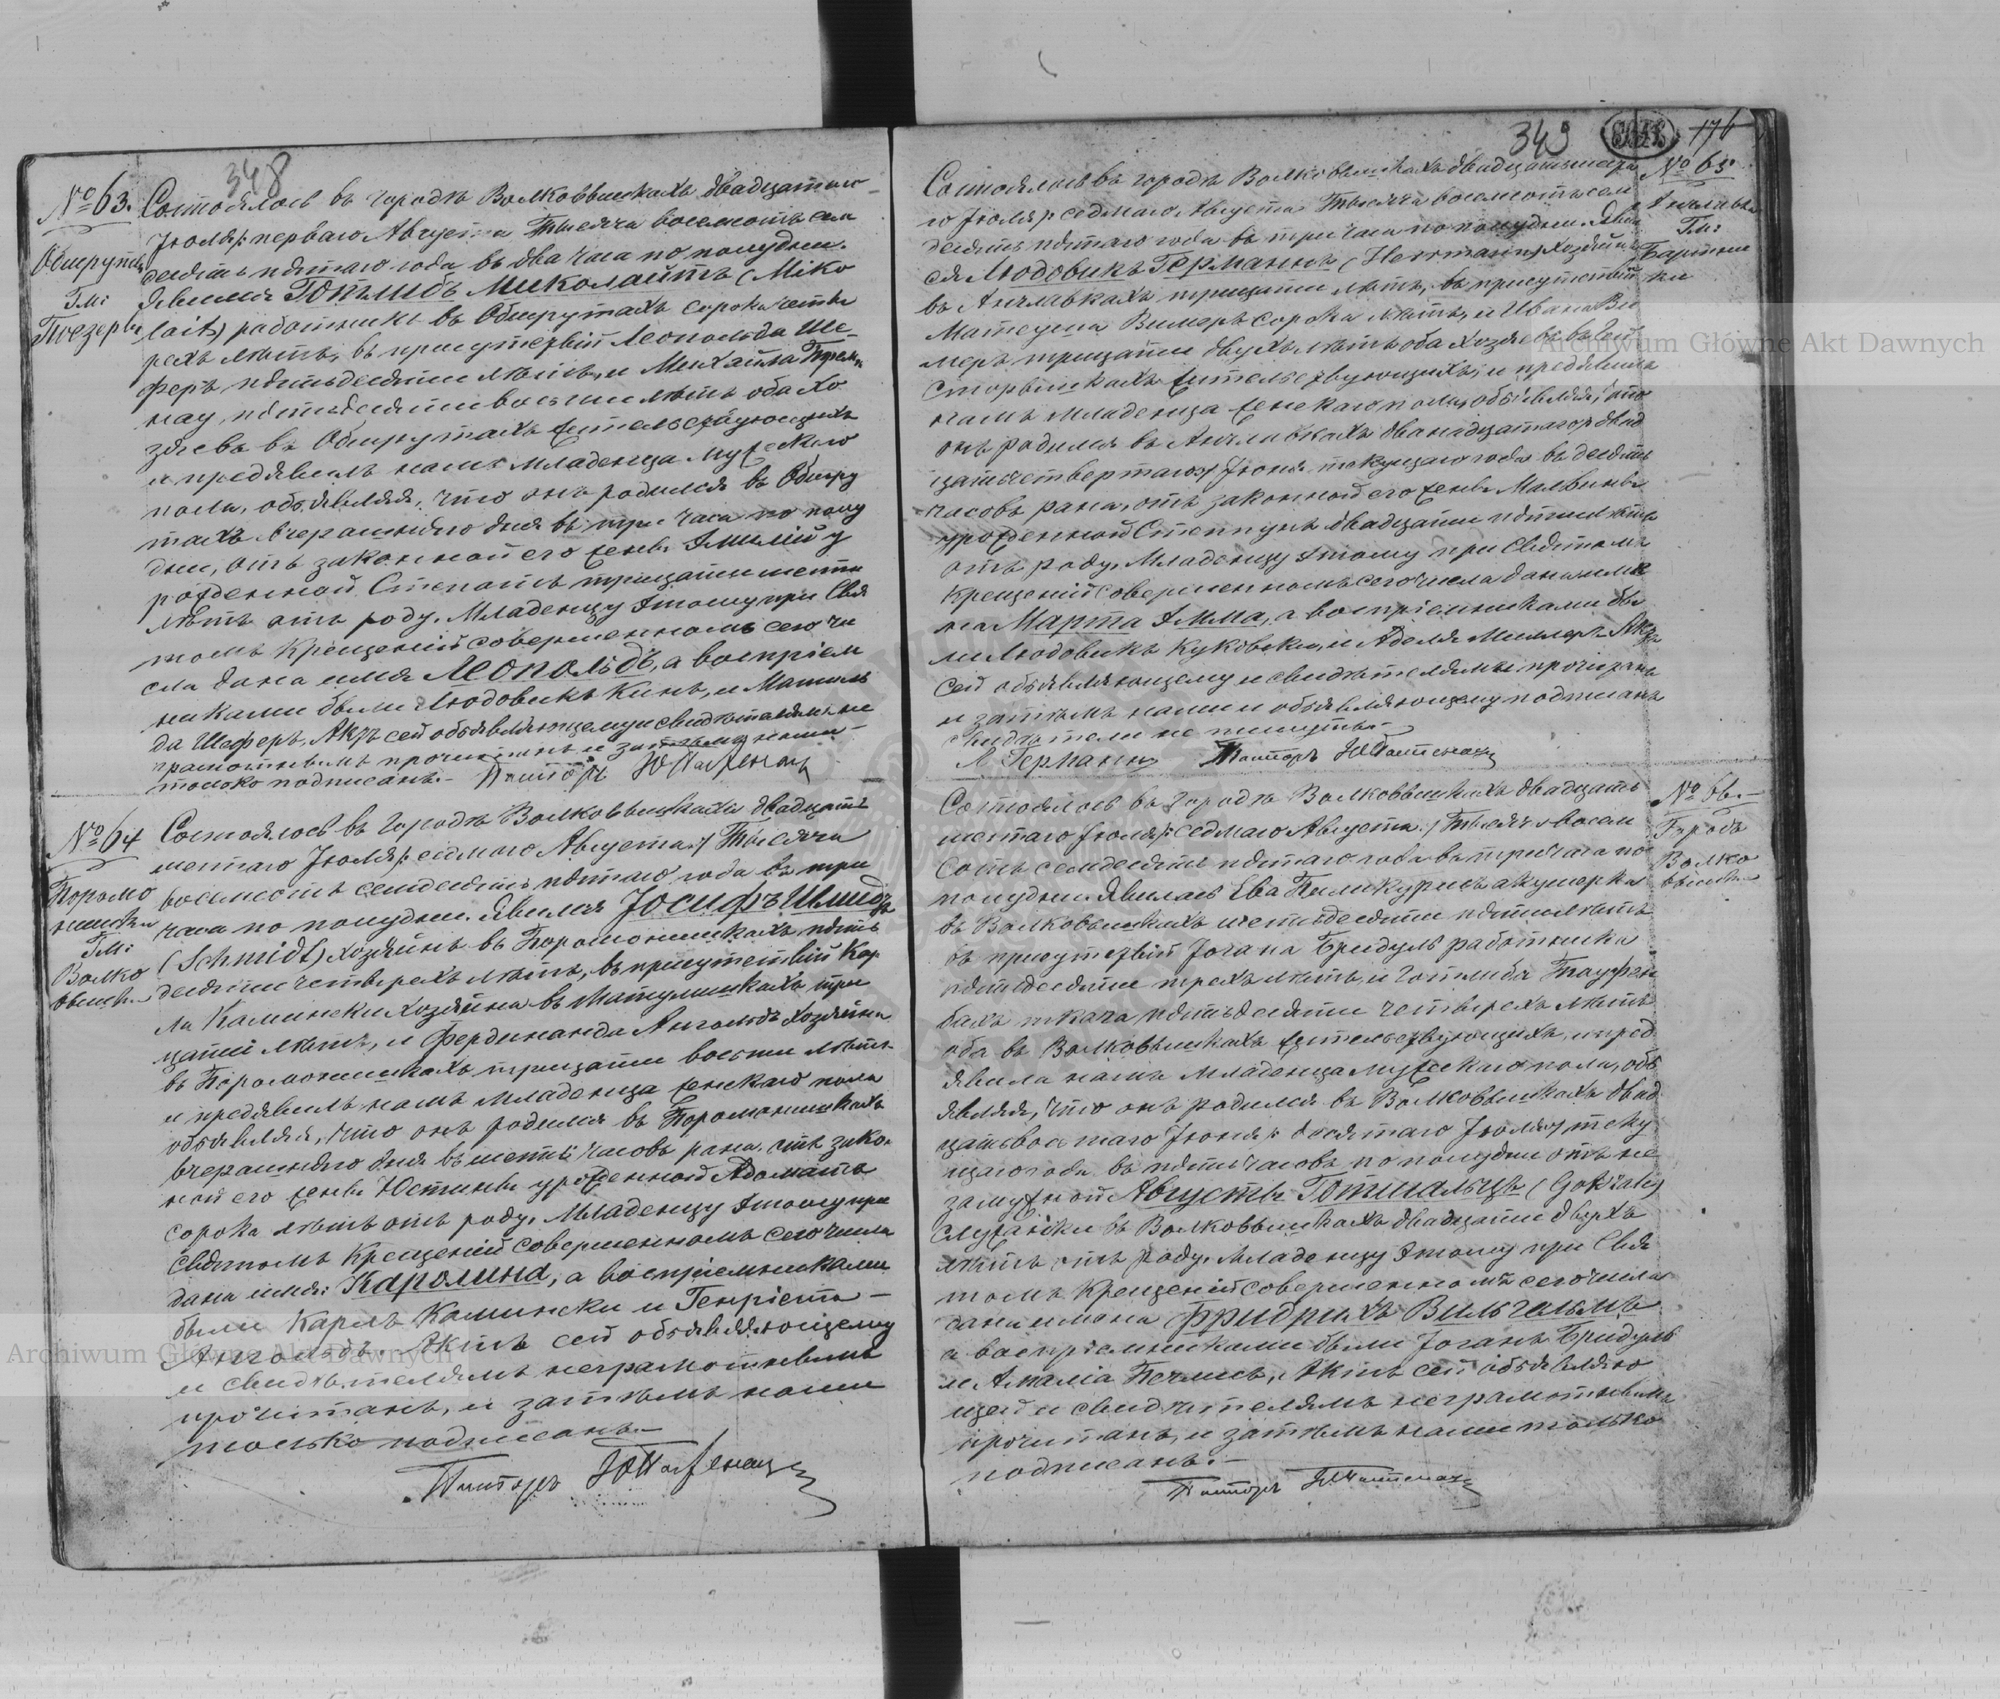 348
№ 63.
Обшрутъ
Гм:
Поезеры
Состоялось въ городѣ Волковышкахъ двадцатаго
Іюля /: перваго Августа Тысяча восемьсотъ сем
десятъ пятаго года въ два часа по полудни.
Явился Готлибъ Миколайтъ (Miko
lait) работникъ въ Обшрутахъ сорока четы
рехъ лѣтъ, въ присутствіи Леопольда Ше-
феръ пятьдесяти лѣтъ, и Михаила
нау, пятьдесяти восьми лѣтъ оба хо
зяевъ въ Обшрутахъ жительствующихъ
и предъявилъ намъ младенца мужескаго
пола, объявляя, что онъ родился въ Обшру
тахъ вчерашняго дня въ три часа по полу
дни, отъ законной его жены Эмиліи у
рожденной Степатъ тридцати шести
лѣтъ отъ роду. Младенцу этому при Свя
томъ Крещеніи совершенномъ сего чи
сла дано имя Леопольдъ, а воспріем
никами были Людовикъ Кинъ, и Матиль
да Шеферъ, Актъ сей объявляющему и свидѣтелямъ не
грамотнымъ прочитанъ и затѣмъ нами
только подписанъ.- Пасторъ
№ 64
Поромо
нишки
Гм:
Волко
вышк.
Состоялось въ городѣ Волковышкахъ двадцать
шестаго Іюля /: седмаго Августа :/ Тысяча
восемьсотъ семьдесятъ пятаго года въ три
часа по полудни. Явился Іосифъ Шмидтъ
(Schmidt) хозяинъ въ Поромонишкахъ пять
десяти четырехъ лѣтъ, въ присутствіи Кар
ла Камински хозяина въ Матулишкахъ три
цати лѣтъ, и Фердинанда Анголядъ хозяина
въ Поромонишкахъ тридцати восьми лѣтъ
и предъявилъ намъ младенца женскаго пола
объявляя, что онъ родился въ Поромонишкахъ
вчерашняго дня въ шесть часовъ рана, отъ зако
ной его жены Юстины урожденной Адоматъ
сорока лѣтъ отъ роду. Младенцу этому при
святомъ Крещеніи совершенномъ сего числа
дано имя: Каролина, а воспріемниками
были Карлъ Камински и Генріета
Анголядъ. Актъ сей объявляющему
и свидѣтелямъ неграмотнымъ
прочитанъ, и затѣмъ нами
только подписанъ.-
Пасторъ
349
176
№ 65.
Гм:
Состоялось въ городѣ Волковышкахъ двадцать шеста
го Іюля /: седмаго Августа Тысяча восемьсотъ сем
десятъ пятаго года въ три часа по полудни. Явил
ся Людовикъ Германнъ (Herrmann) хозяинъ
въ Анчлавкахъ тридцати лѣтъ, въ присутствіи
Матеуша Вимеръ сорока лѣтъ, и Ивана Ви
меръ тридцати двухъ лѣтъ оба хозяевъ въ
жительствующихъ, и предъявилъ
намъ младенца женскаго пола, объявляя, что
онъ родился въ Анчлавкахъ двенадцатаго /: двад
цать четвертаго :/ Іюня текущаго года въ десять
часовъ рана, отъ законной его жены Мальвины
урожденной Степпунъ двадцати пяти лѣтъ
отъ роду. Младенцу этому при Святомъ
Крещеніи совершенномъ сего числа даны име
на Марта Эмма, а воспріемниками бы
ли Людовикъ Куковски, и Аделя Миллеръ. Актъ
сей объявляющему и свидѣтелямъ прочитанъ
и затѣмъ нами и объявляющему подписанъ
свидѣтели не пишутъ.-
Л Германнъ Пасторъ
№ 66.-
Городъ
Волко
вышк.-
Состоялось въ городѣ Волковышкахъ двадцать
шестаго Іюля /: седмаго Августа :/ Тысяча восем
сотъ семдесятъ пятаго года въ три часа по
полудни. Явилась Ева Пиликурисъ акушерка
въ Волковышкахъ шестьдесяти пяти лѣтъ
въ присутствіи Іогана Бридуль работника
пятьдесяти трехъ лѣтъ, и Готлиба Тауфен
бахъ ткача пятьдесяти четырехъ лѣтъ
оба въ Волковышкахъ жительствующихъ, и пред
явила намъ младенца мужескаго пола, объ
являя, что онъ родился въ Волковышкахъ двад
цать восьмаго Іюня /: десятаго Іюля :/ теку
щаго года въ пять часовъ по полудни отъ не
замужной Августы Готшальцъ
служанки въ Волковышкахъ двадцати двухъ
лѣтъ отъ роду. Младенцу этому при Свя
томъ Крещеніи совершенномъ сего числа
даны имена Фридрихъ Вильгельмъ
а воспріемниками были Іоганъ Бридуль
и Амалія Печлисъ, Актъ сей объявляю
щей и свидѣтелямъ неграмотнымъ
прочитанъ, и затѣмъ нами только
подписанъ.-
Пасторъ
Archiwum Główne Akt Dawnych
Archiwum Główne Akt Dawnych